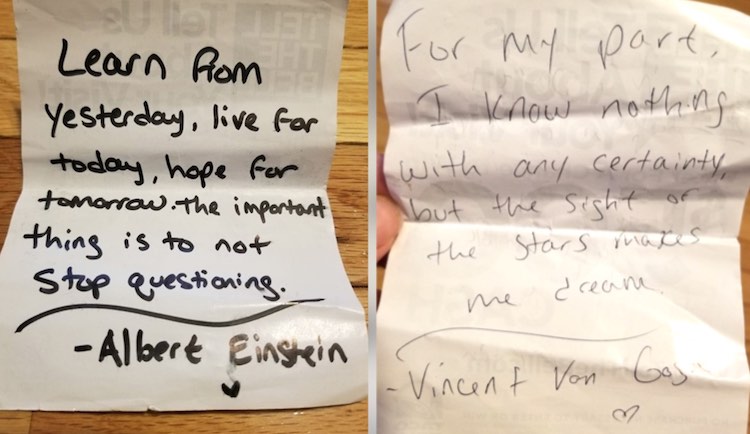 Learn from
yesterday, live for
today, hope for
tomorrow. The important
thing is to not
Stop questioning.
-Albert Einstein
For my part,
I know nothing
with any certainty,
but the sight of
the stars makes
me dream.
-Vincent Van Gogh